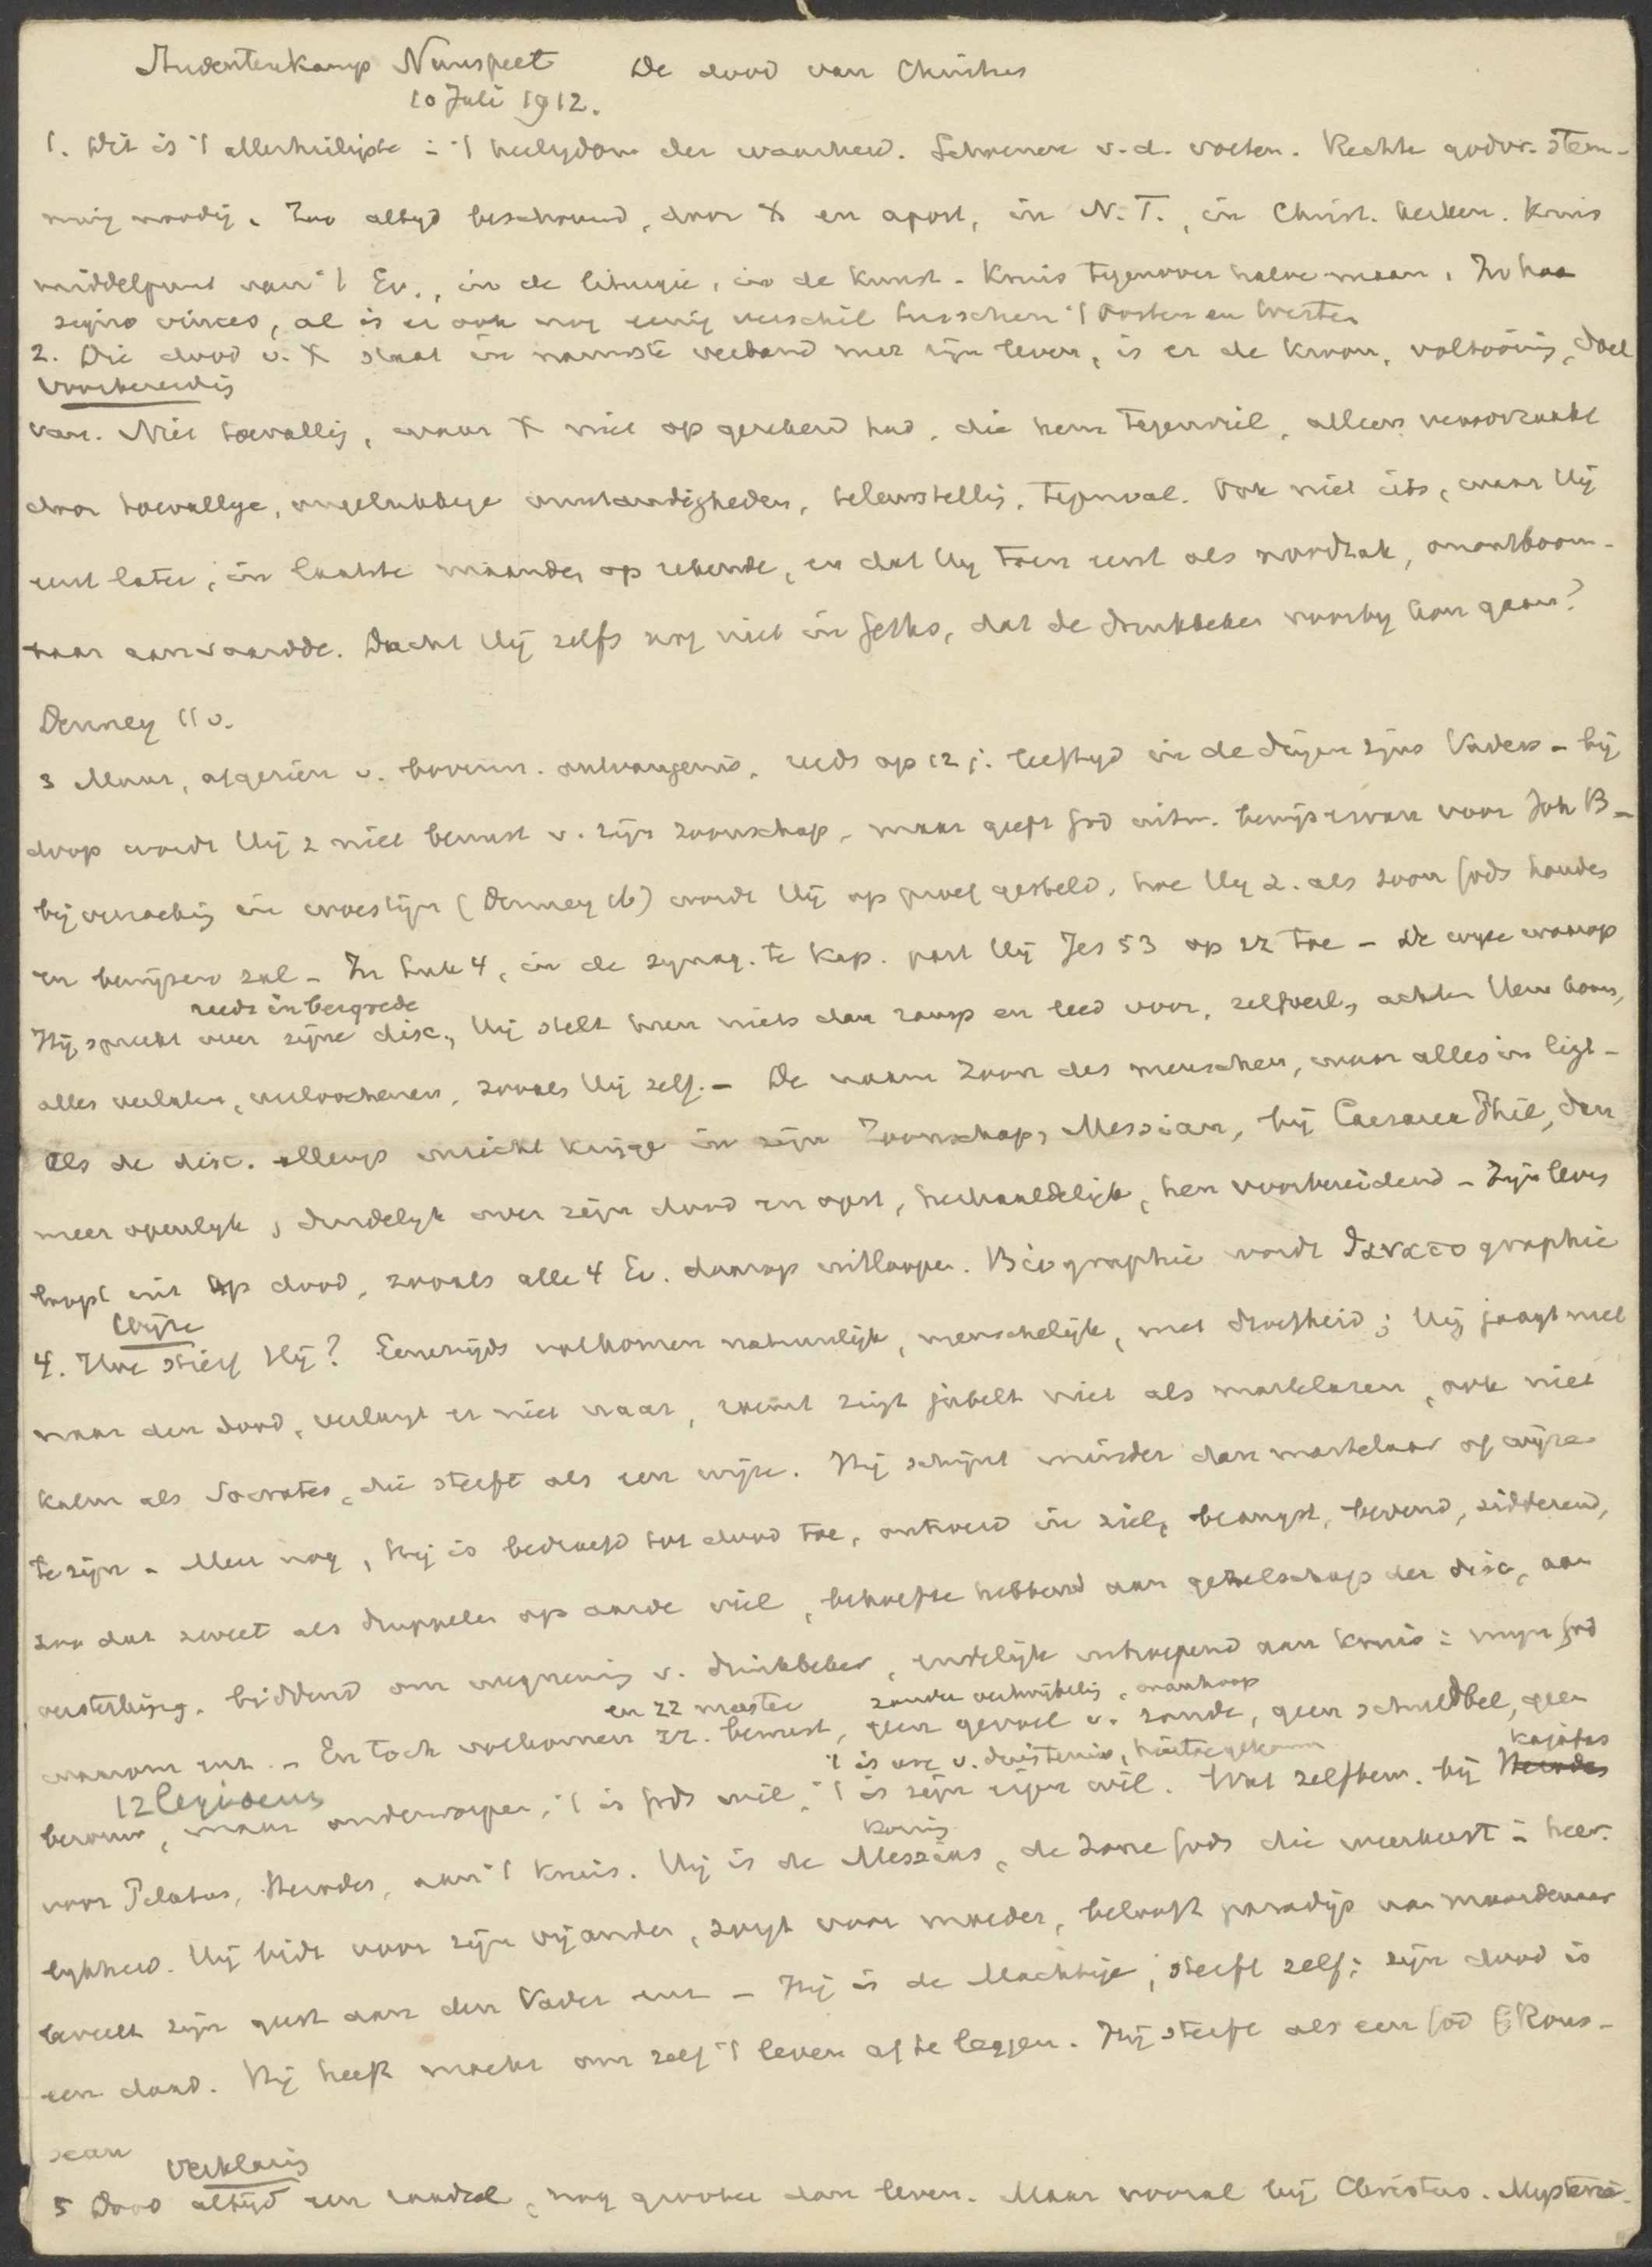 Studentenkamp Nunspeet De dood van Christus
10 Juli 1912.
1. Dit is 't allerheiligste in 't heiligdom der waarheid. Schoenen v. d. voeten. Rechte godvr. stem-
ming noodig. Zoo altyd beschouwd, door X en apost, in N. T., in Christ. kerken. Kruis
middelpunt van 't Ev., in de liturgie, in de Kunst. Kruis tegenover halve maan. In hoc
signo vinces, al is er ook nog eenig verschil tusschen 't Oosten en Westen
2. Die dood v. X staat in nauwste verband met zijn leven, is er de kroon, voltooiing, doel
Voorbereidig
van. Niet toevallig, waar X niet op gerekend had, die hem tegenviel, alleen veroorzaakt
door toevallige, ongelukkige omstandigheden, teleurstellig, tegenval. Ook niet iets, waar Hij
eerst later, in laatste maanden op rekende, en dat Hij toen eerst als noodzak, onontkoom-
baar aanvaardde. Dacht Hij zelfs nog niet in Geths, dat de drinkbeker voorby kon gaan?
Denney 11 v.
3 Maar, afgezien v. bovenn. ontvangenis, reeds op 12 j. leeftyd in de dingen zijns Vaders – bij
doop wordt Hij z niet bewust v. zijn zoonschap, maar geeft God uitw. bewijs ervan voor Joh B –
bij verzoekig in woestijn (Denney 16) wordt Hij op proef gesteld, hoe Hij z. als zoon Gods houden
en bewijzen zal – In Luk 4, in de synag. te Kap. past Hij Jes 53 op zz toe – De wijze waarop
reeds in bergrede
Hij spreekt over zijne disc., Hij stelt hun niets dan ramp en leed voor, zelfverl., achter Hem komen,
alles verlaten, verloochenen, zooals Hij zelf. – De naam Zoon des menschen, waar alles in ligt –
Als de disc. allengs inzicht krijgen in zijn Zoonschap, Messian, bij Caesarea Phil, dan
meer openlyk, duidelyk over zijn dood en opst, herhaaldelijk, hen voorbereidend – Zijn leven
loopt uit op dood, zooals alle 4 Ev. daarop uitloopen. Biographie wordt θανατο graphie
Wijze
4. Hoe stierf Hij? Eenerzijds volkomen natuurlijk, menschelijk, met droefheid; Hij jaagt niet
naar den dood, verlangt er niet naar, roemt zingt jubelt niet als martelaren, ook niet
kalm als Socrates, die sterft als een wijze. Hij schijnt minder dan martelaar of wijze
te zijn. Meer nog, Hij is bedroefd tot dood toe, ontroerd in ziel, beangst, bevend, sidderend,
zoo dat zweet als druppelen op aarde viel, behoefte hebbend aan gezelschap der disc, aan
versterking, biddend om wegneming v. drinkbeker, eindelijk uitroepend aan kruis: mijn God
en zz meester zonder vertwijfelig, wanhoop
waarom enz. – En toch volkomen zz. bewust, geen gevoel v. zonde, geen schuldbel, geen
't is ure v. duisternis, Kajafas
12 legioenen
berouw, maar onderworpen, 't is Gods wil, 't is zijn eigen wil. Wat zelfbew. bij Herodes
Koning
voor Pilatus, Herodes, aan 't kruis. Hij is de Messias, de Zone Gods die weerkeert in heer-
lykheid. Hij bidt voor zijn vijanden, zorgt voor moeder, belooft paradijs aan moordenaar
beveelt zijn geest aan den Vader enz – Hij is de Machtige, sterft zelf; zijn dood is
een daad. Hij heeft macht om zelf 't leven af te leggen. Hij sterft als een God (Rous-
seau
Verklaring
5 Dood altijd een raadsel, nog grooter dan leven. Maar vooral bij Christus. Mysterie.